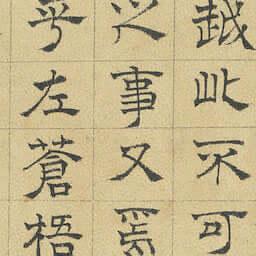 越此不可
之事又焉
乎左蒼梧